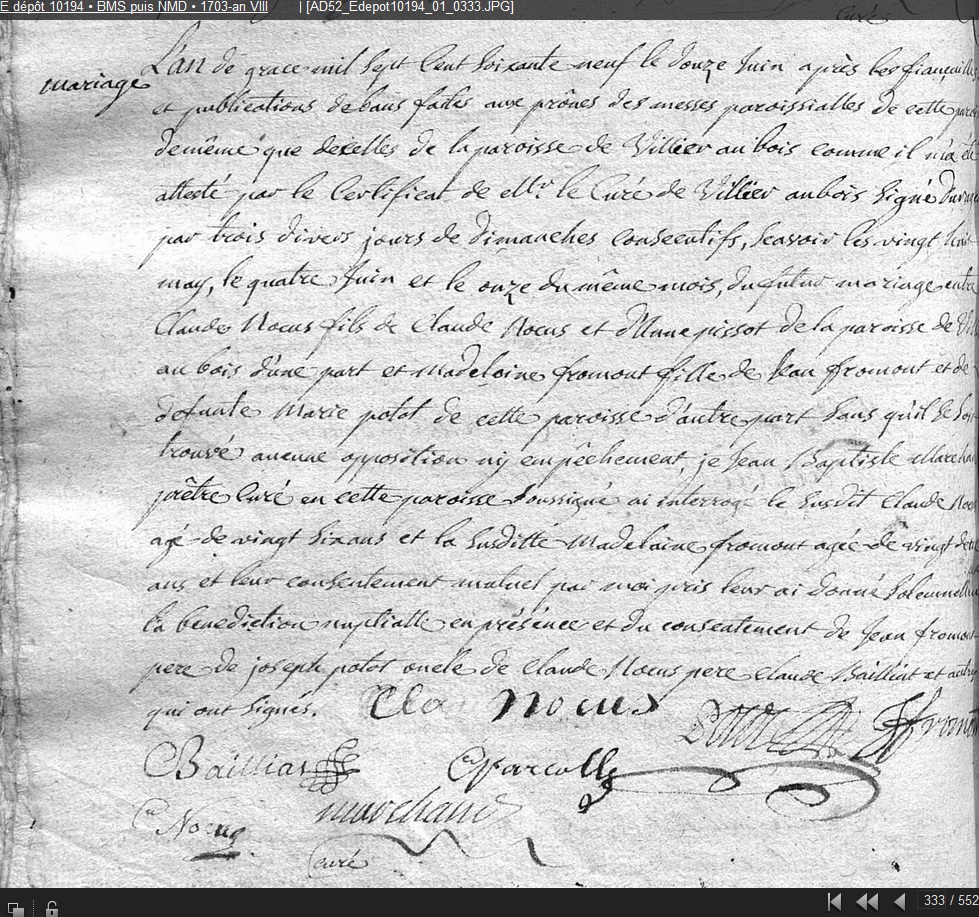 E dépôt 10194 • BMS puis NMD • 1703-an VIII | [AD52_Edepot10194_01_0333.JPG]
curé
mariage
L'an de grace mil sept cent soixante neuf le douze Juin après les fiançailles
et publications de bans faites aux prônes des messes paroissialles de cette
de même que de celles de la paroisse de Villier au bois comme il m'a été
attesté par le Certificat de Mr le Curé de Villier au bois signé
par trois divers jours de dimanches consecutifs, scavoir les vingt huit
may, le quatre Juin et le onze du même mois, du futur mariage entre
Claude Nocus fils de Claude Nocus et d'Anne pissot de la paroisse de
au bois d'une part et Madelaine fromont fille de Jean fromont et de
defunte Marie potot de cette paroisse d'autre part sans qu'il se soit
trouvé aucune opposition ny empêchement, je Jean Baptiste
prêtre Curé en cette paroisse soussigné ai interrogé le susdit Claude
agé de vingt six ans et la susditte Madelaine fromont agée de vingt
ans et leur consentement mutuel par moi pris leur ai donné solemnellement
la benediction nuptialle en présence et du consentement de Jean fromont
pere de joseph potot oncle de Claude Nocus pere Claude Bailliat et autres
qui ont signés.
Cla Nocus
Potot
Bailliat
C Nocus
curé
333 / 552